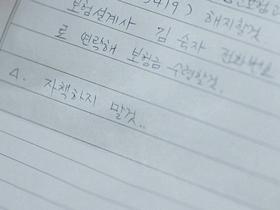 5419) 해지할것
보험설계사 김 숙자 전화번호
로 연락해 보험금 수령할것.
4. 자책하지 말것..